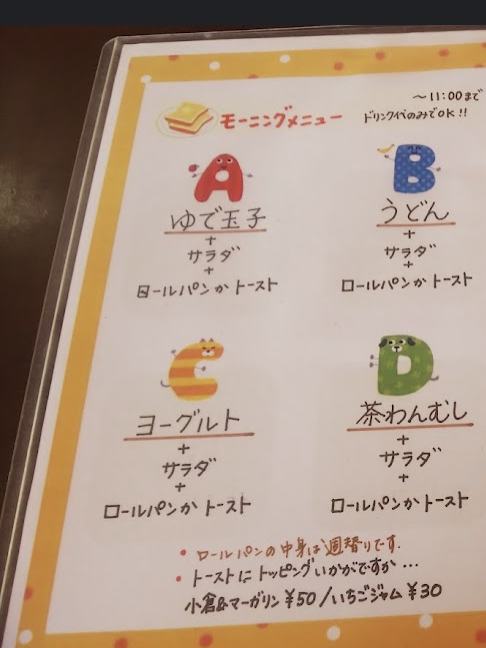 モーニングメニュー
～11:00まで
ドリンク代のみでOK!!
A
ゆで玉子
+
サラダ
+
ロールパンかトースト
B
うどん
+
サラダ
+
ロールパンかトースト
C
ヨーグルト
+
サラダ
+
ロールパンかトースト
D
茶わんむし
+
サラダ
+
ロールパンかトースト
• ロールパンの中身は週替りです.
• トーストにトッピングいかがですか…
小倉&マーガリン ¥50/いちごジャム ¥30